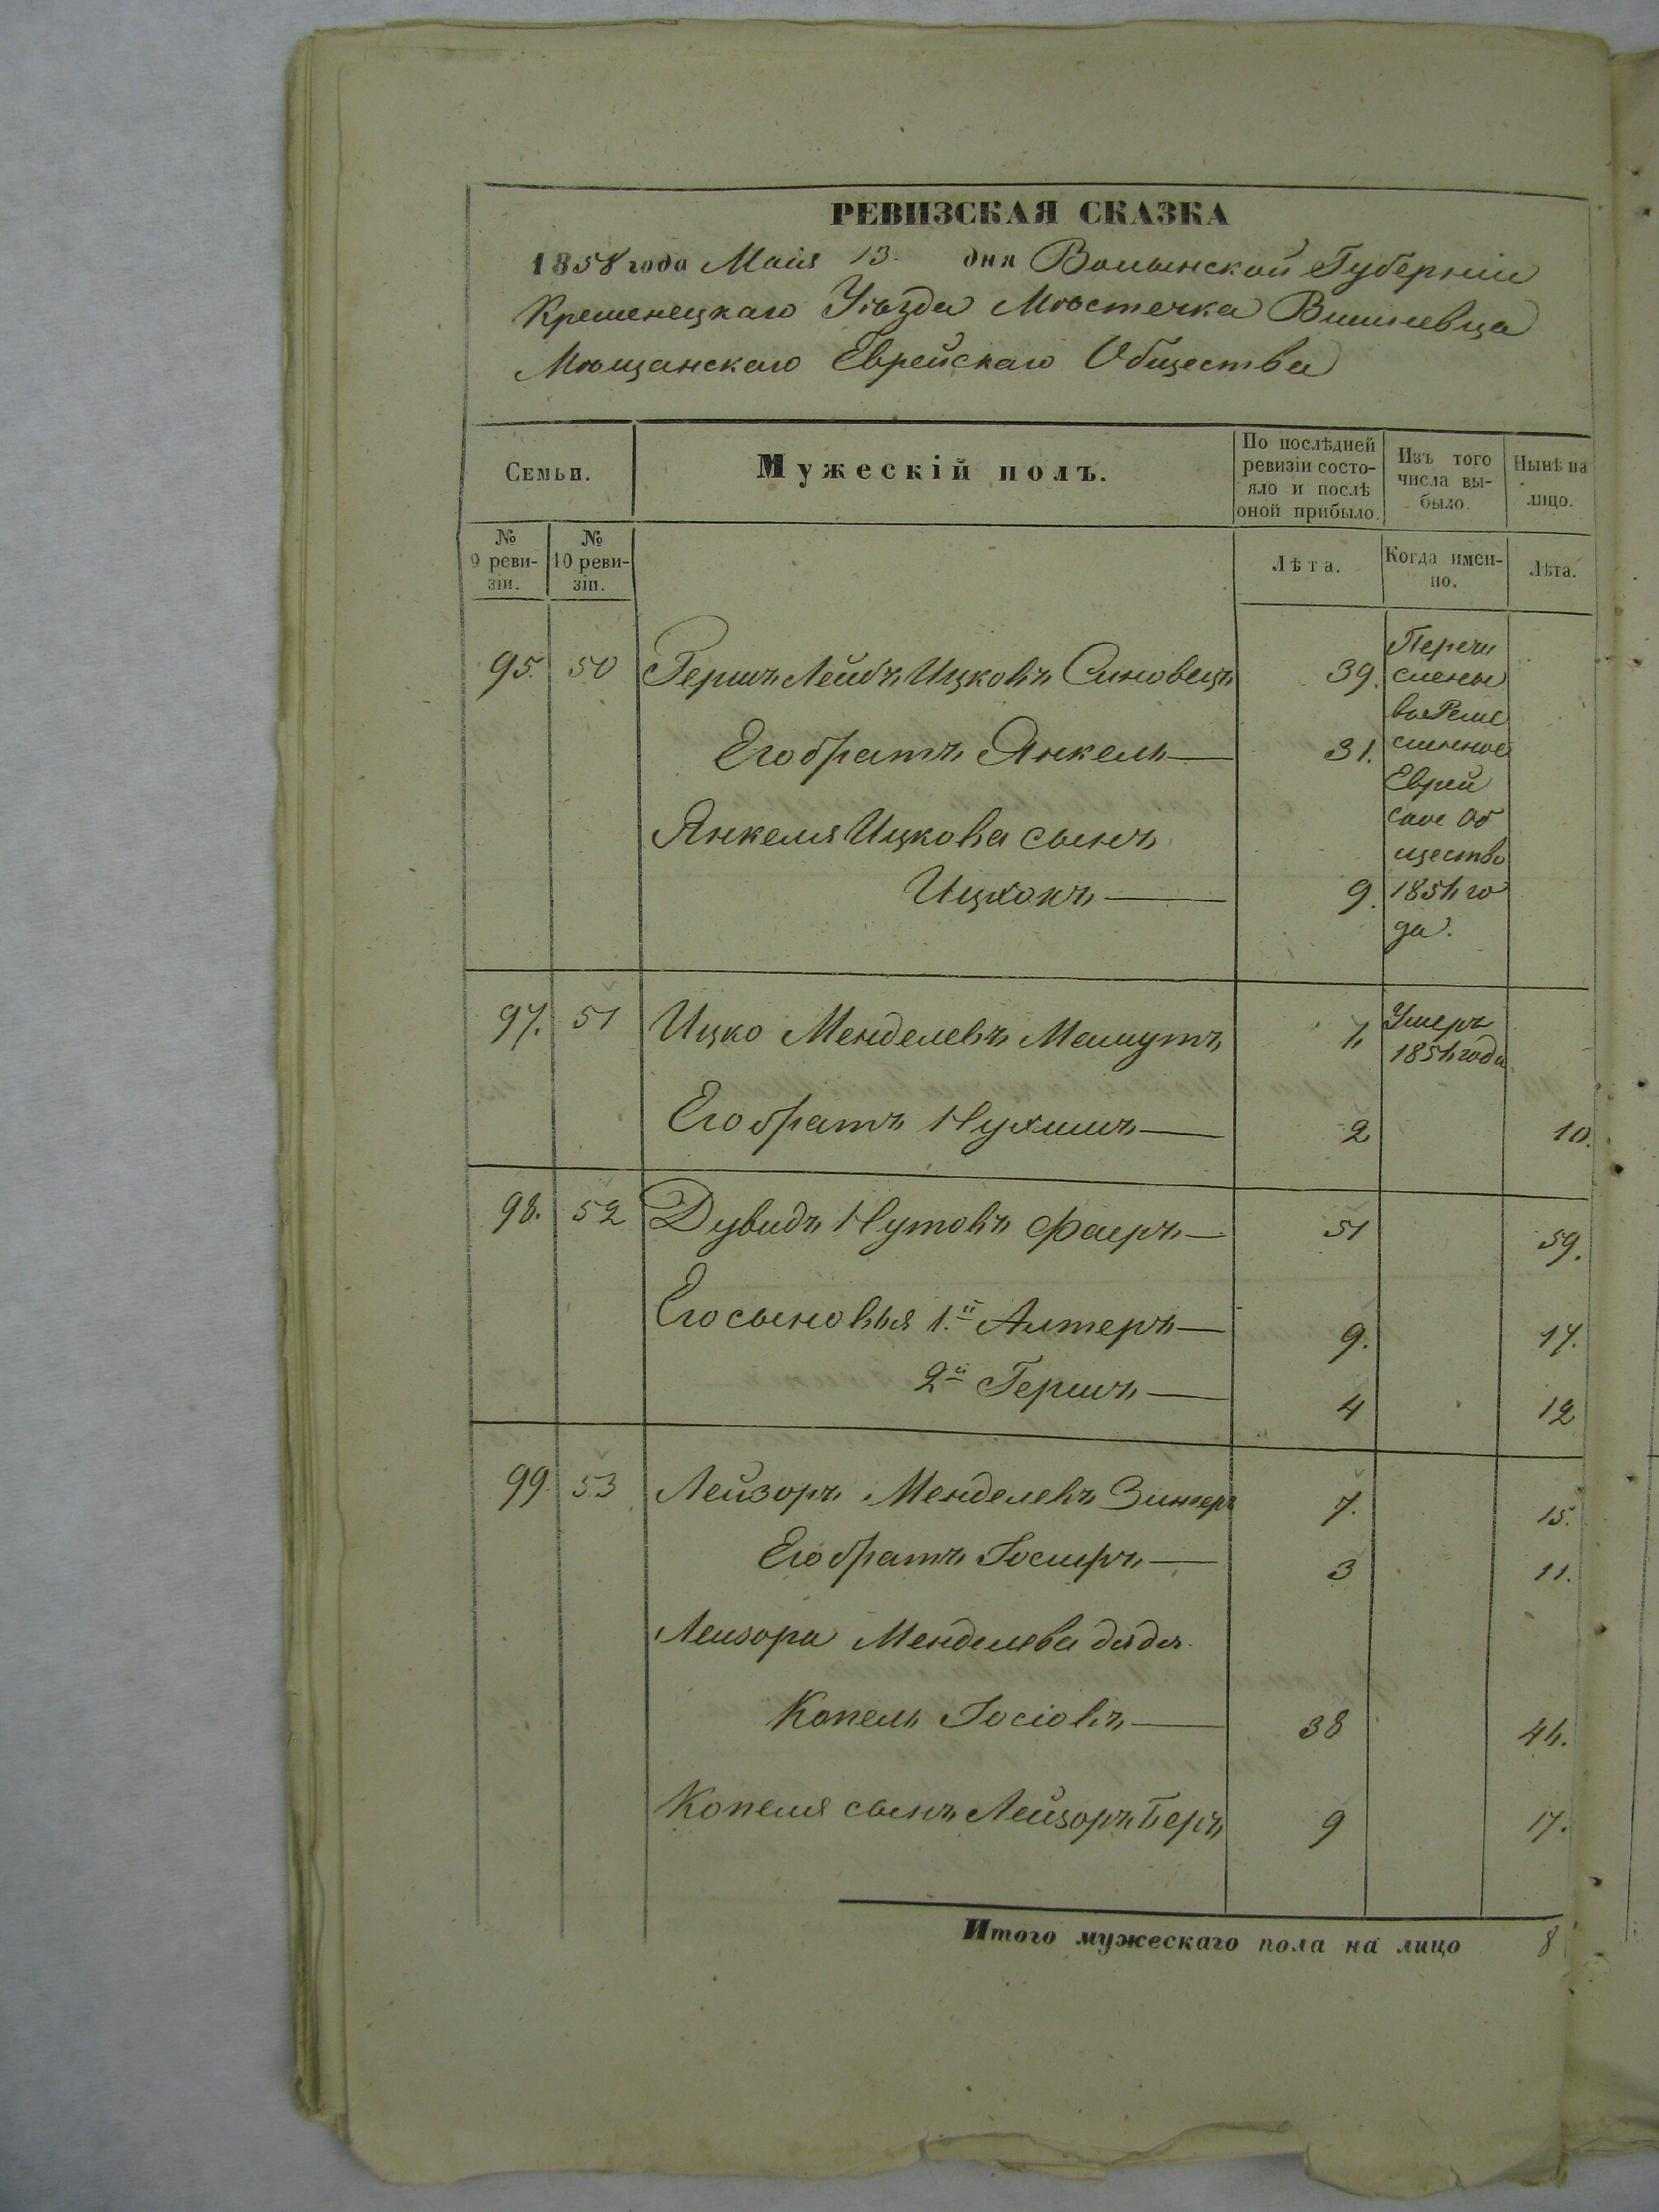 РЕВИЗСКАЯ СКАЗКА
1858 года Маія 13. дня Волынской Губерніи
Кременецкаго Уѣзда Мѣстечка Вишневца
Мѣщанскаго Еврейскаго Общества
Семьи.
Мужескій полъ.
По послѣдней ревизіи состояло и послѣ оной прибыло.
Изъ того числа выбыло.
Нынѣ на лицо.
№ 9 ревизіи.
№ 10 ревизіи.
Лѣта.
Когда именно.
Лѣта.
95. 50 Гершъ Лейбъ Ицковъ Синовецъ 39.
Перечи
слены
въ Реме
сленное
Еврей
ское Об
щество
1854 го
да.
Его братъ Янкель 31.
Янкеля Ицкова сынъ
Ицхокъ 9.
97. 51 Ицко Менделевъ Мамутъ 4 Умеръ
1854 года
Его братъ Нухимъ 2 10.
98. 52 Дувидъ Нутовъ Фаеръ 51 59.
Его сыновья 1й Алтеръ 9. 17.
2й Гершъ 4 12
99. 53 Лейзоръ Менделевъ Зингеръ 7. 15.
Его братъ Іосифъ 3 11.
Лейзора Менделева дядя
Копель Іосіовъ 38 44.
Копеля сынъ Лейзоръ Беръ 9 17.
Итого мужескаго пола на лицо 8